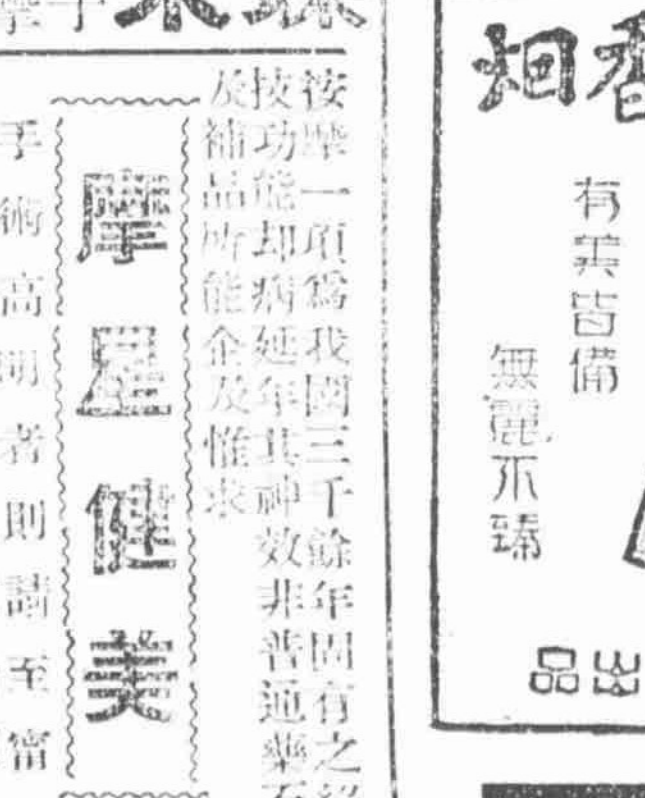 香烟
有美皆備
無麗不臻
出品
按摩一項爲我國三千餘年固有之
技功能却病延年其神效非普通藥
及補品所能企及惟求
摩星健美
手術高明者則請至甯